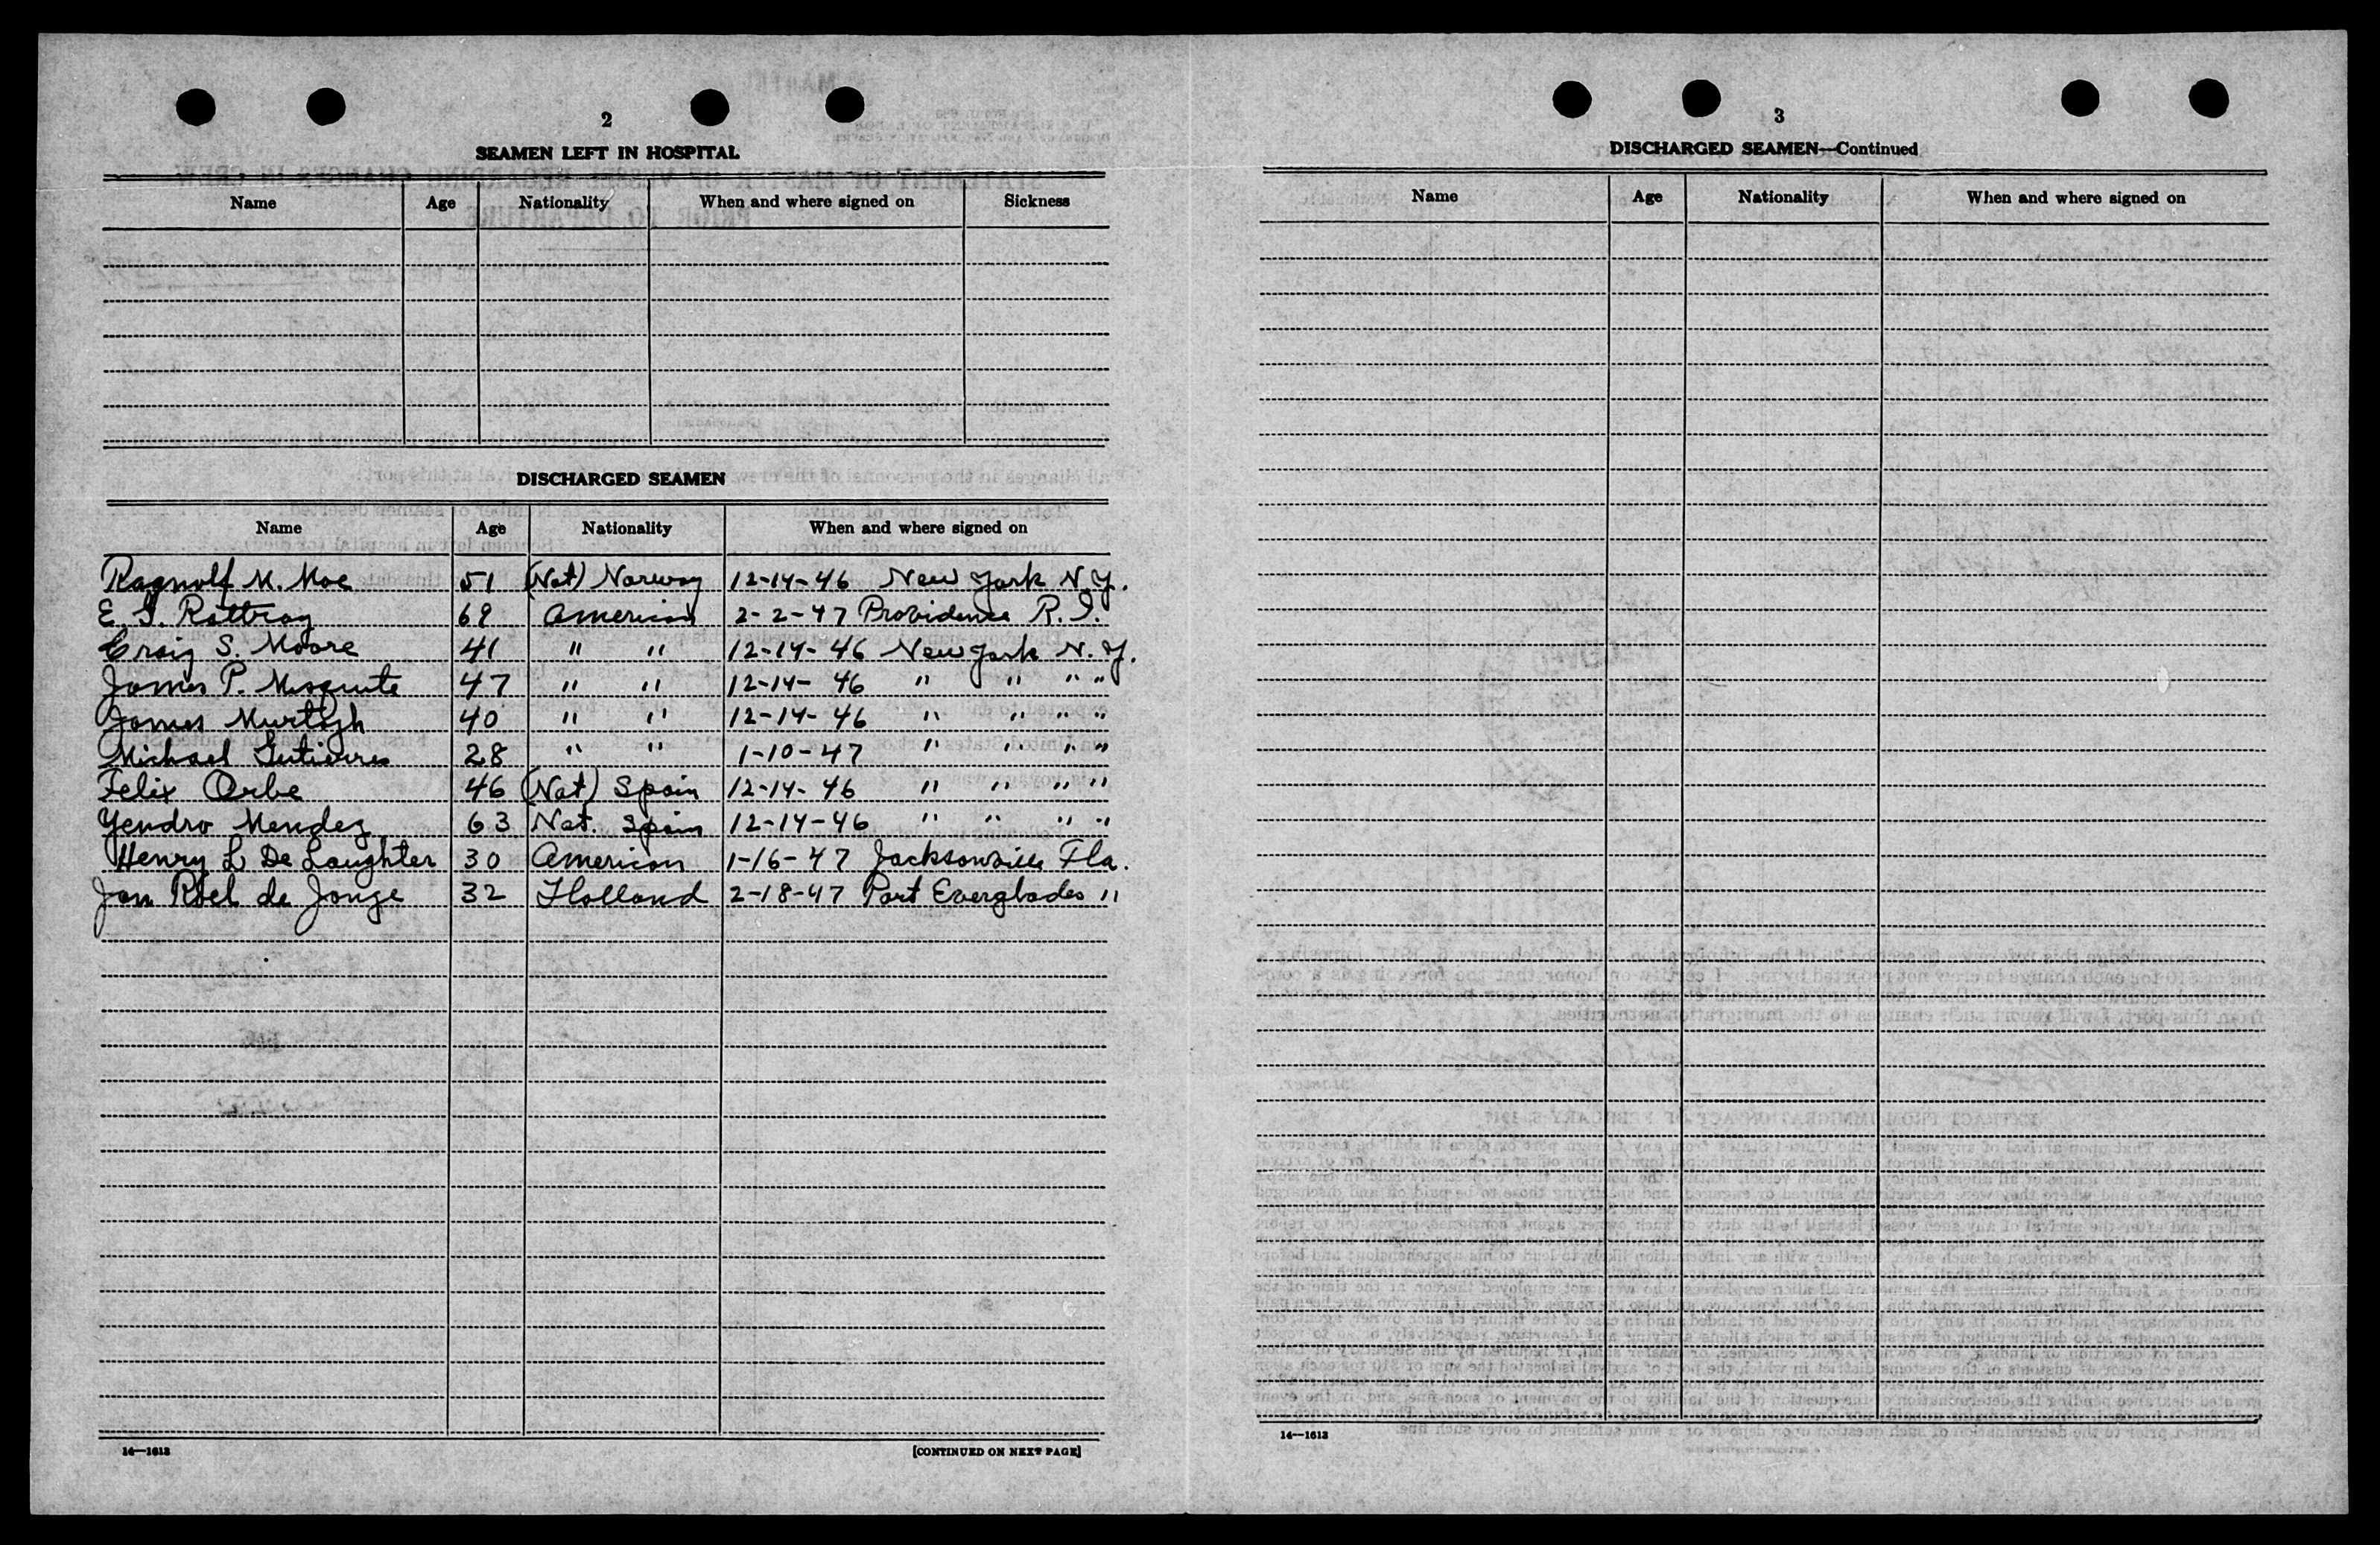 2
SEAMEN LEFT IN HOSPITAL
Name Age Nationality When and where signed on Sickness
DISCHARGED SEAMEN
Name Age Nationality When and where signed on
Ragnolf M. Moe 51 (Nat) Norway 12-14-46 New York N.Y.
E. G. Rattray 69 American 2-2-47 Providence R.I.
Craig S. Moore 41 " " 12-14-46 New York N.Y.
James P. Mesquite 47 " " 12-14-46 " " " "
James Murtagh 40 " " 12-14-46 " " " "
Michael Gutierres 28 " " 1-10-47 " " " "
Felix Orbe 46 (Nat) Spain 12-14-46 " " " "
Yendro Mendez 63 Nat. Spain 12-14-46 " " " "
Henry L De Laughter 30 American 1-16-47 Jacksonville Fla.
Jan Roel de Jonge 32 Holland 2-18-47 Port Everglades "
14—1613 [CONTINUED ON NEXT PAGE]
3
DISCHARGED SEAMEN—Continued
Name Age Nationality When and where signed on
14—1613